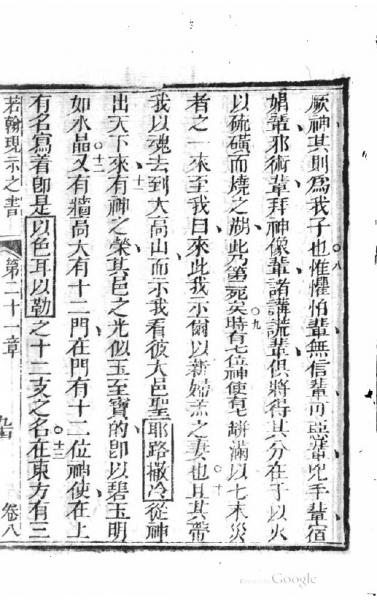 厥神其則爲我子也惟懼怕輩無信輩可惡輩兇手輩宿
娼輩邪術輩拜神像輩諸講謊輩俱將得其分在于以火
以硫磺而燒之湖此乃第死矣時有七位神使有七缾滿以七末災
者之一來至我曰來此我示爾以新婦羔之妻也且其帶
我以魂去到大高山而示我看彼大邑聖耶路撒冷從神
出天下來有神之榮其邑之光似玉至寶的即以碧玉明
如水晶又有牆高大有十二門在門有十二位神使在上
有名寫着即是以色耳以勒之十二支之名在東方有三
若翰現示之書 第二十一章 卷八
Google